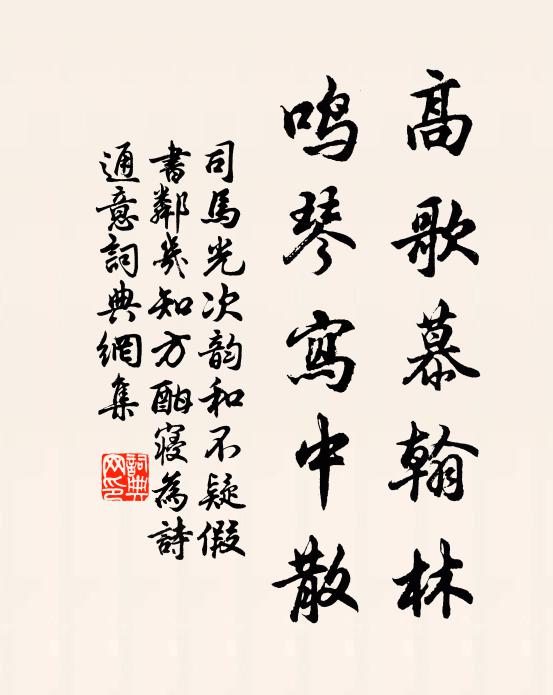 高歌慕翰林
鳴琴寫中散
司馬光次韵和不疑假
書鄰幾知方酣寝為詩
通意詞典網集
詞典
网印